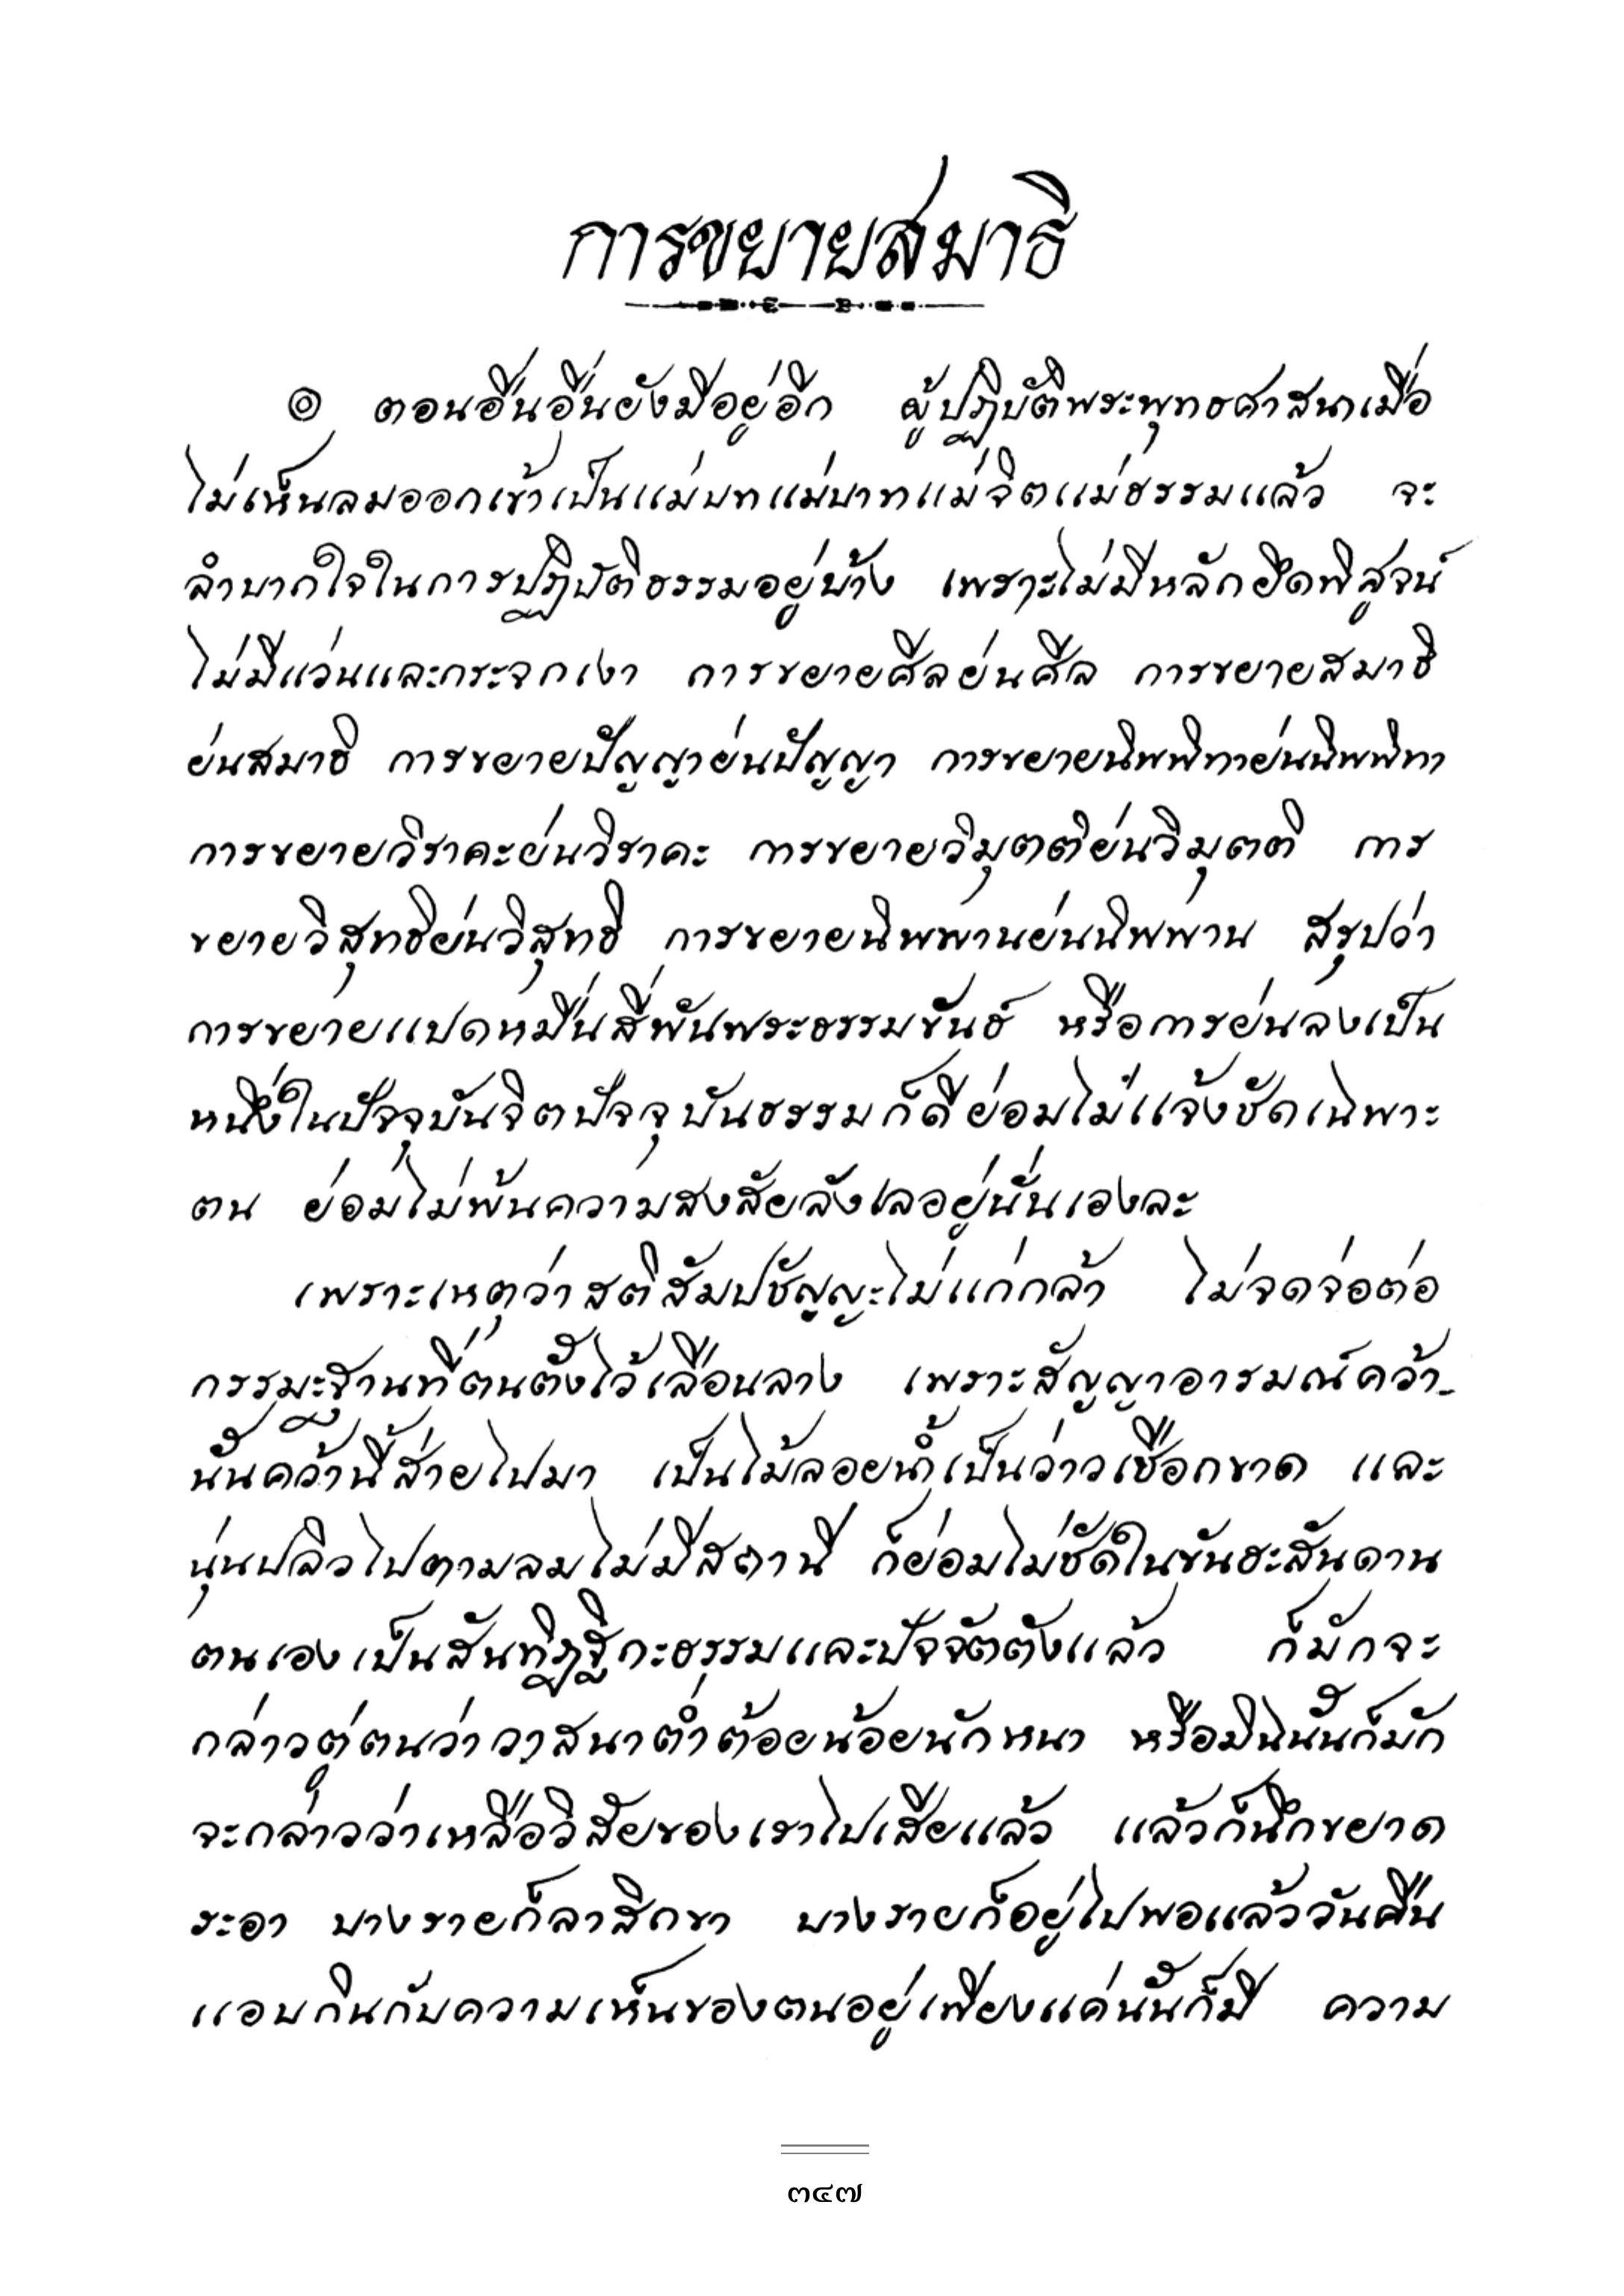 การขยายสมาธิ
๏ ตอนอื่นอื่นยังมีอยู่อีก ผู้ปฏิบัติพระพุทธศาสนาเมื่อ
ไม่เห็นลมออกเข้าเป็นแม่บทแม่บาทแม่จิตแม่ธรรมแล้ว จะ
ลำบากใจในการปฏิบัติธรรมอยู่บ้าง เพราะไม่มีหลักยึดพิสูจน์
ไม่มีแว่นและกระจกเงา การขยายศีลย่นศีล การขยายสมาธิ
ย่นสมาธิ การขยายปัญญาย่นปัญญา การขยายนิพพิทาย่นนิพพิทา
การขยายวิราคะย่นวิราคะ การขยายวิมุตติย่นวิมุตติ การ
ขยายวิสุทธิย่นวิสุทธิ การขยายนิพพานย่นนิพพาน สรุปว่า
การขยายแปดหมื่นสี่พันพระธรรมขันธ์ หรือการย่นลงเป็น
หนึ่งในปัจจุบันจิตปัจจุบันธรรมก็ดีย่อมไม่แจ้งชัดเฉพาะ
ตน ย่อมไม่พ้นความสงสัยลังเลอยู่นั่นเองละ
เพราะเหตุว่าสติสัมปชัญญะไม่แก่กล้า ไม่จดจ่อต่อ
กรรมะฐานที่ตนตั้งไว้เลือนลาง เพราะสัญญาอารมณ์คว้า-
นั้นคว้านี้ส่ายไปมา เป็นไม้ลอยน้ำเป็นว่าวเชือกขาด และ
นุ่นปลิวไปตามลมไม่มีสถานี ก็ย่อมไม่ชัดในขันธะสันดาน
ตนเองเป็นสันทิฏฐิกะธรรมและปัจจัตตังแล้ว ก็มักจะ
กล่าวตู่ตนว่าวาสนาต่ำต้อยน้อยนักหนา หรือมิฉนั้นก็มัก
จะกล่าวว่าเหลือวิสัยของเราไปเสียแล้ว แล้วก็นึกขยาด
ระอา บางรายก็ลาสิกขา บางรายก็อยู่ไปพอแล้ววันคืน
แอบกินกับความเห็นของตนอยู่เพียงแค่นั้นก็มี ความ
๓๔๗